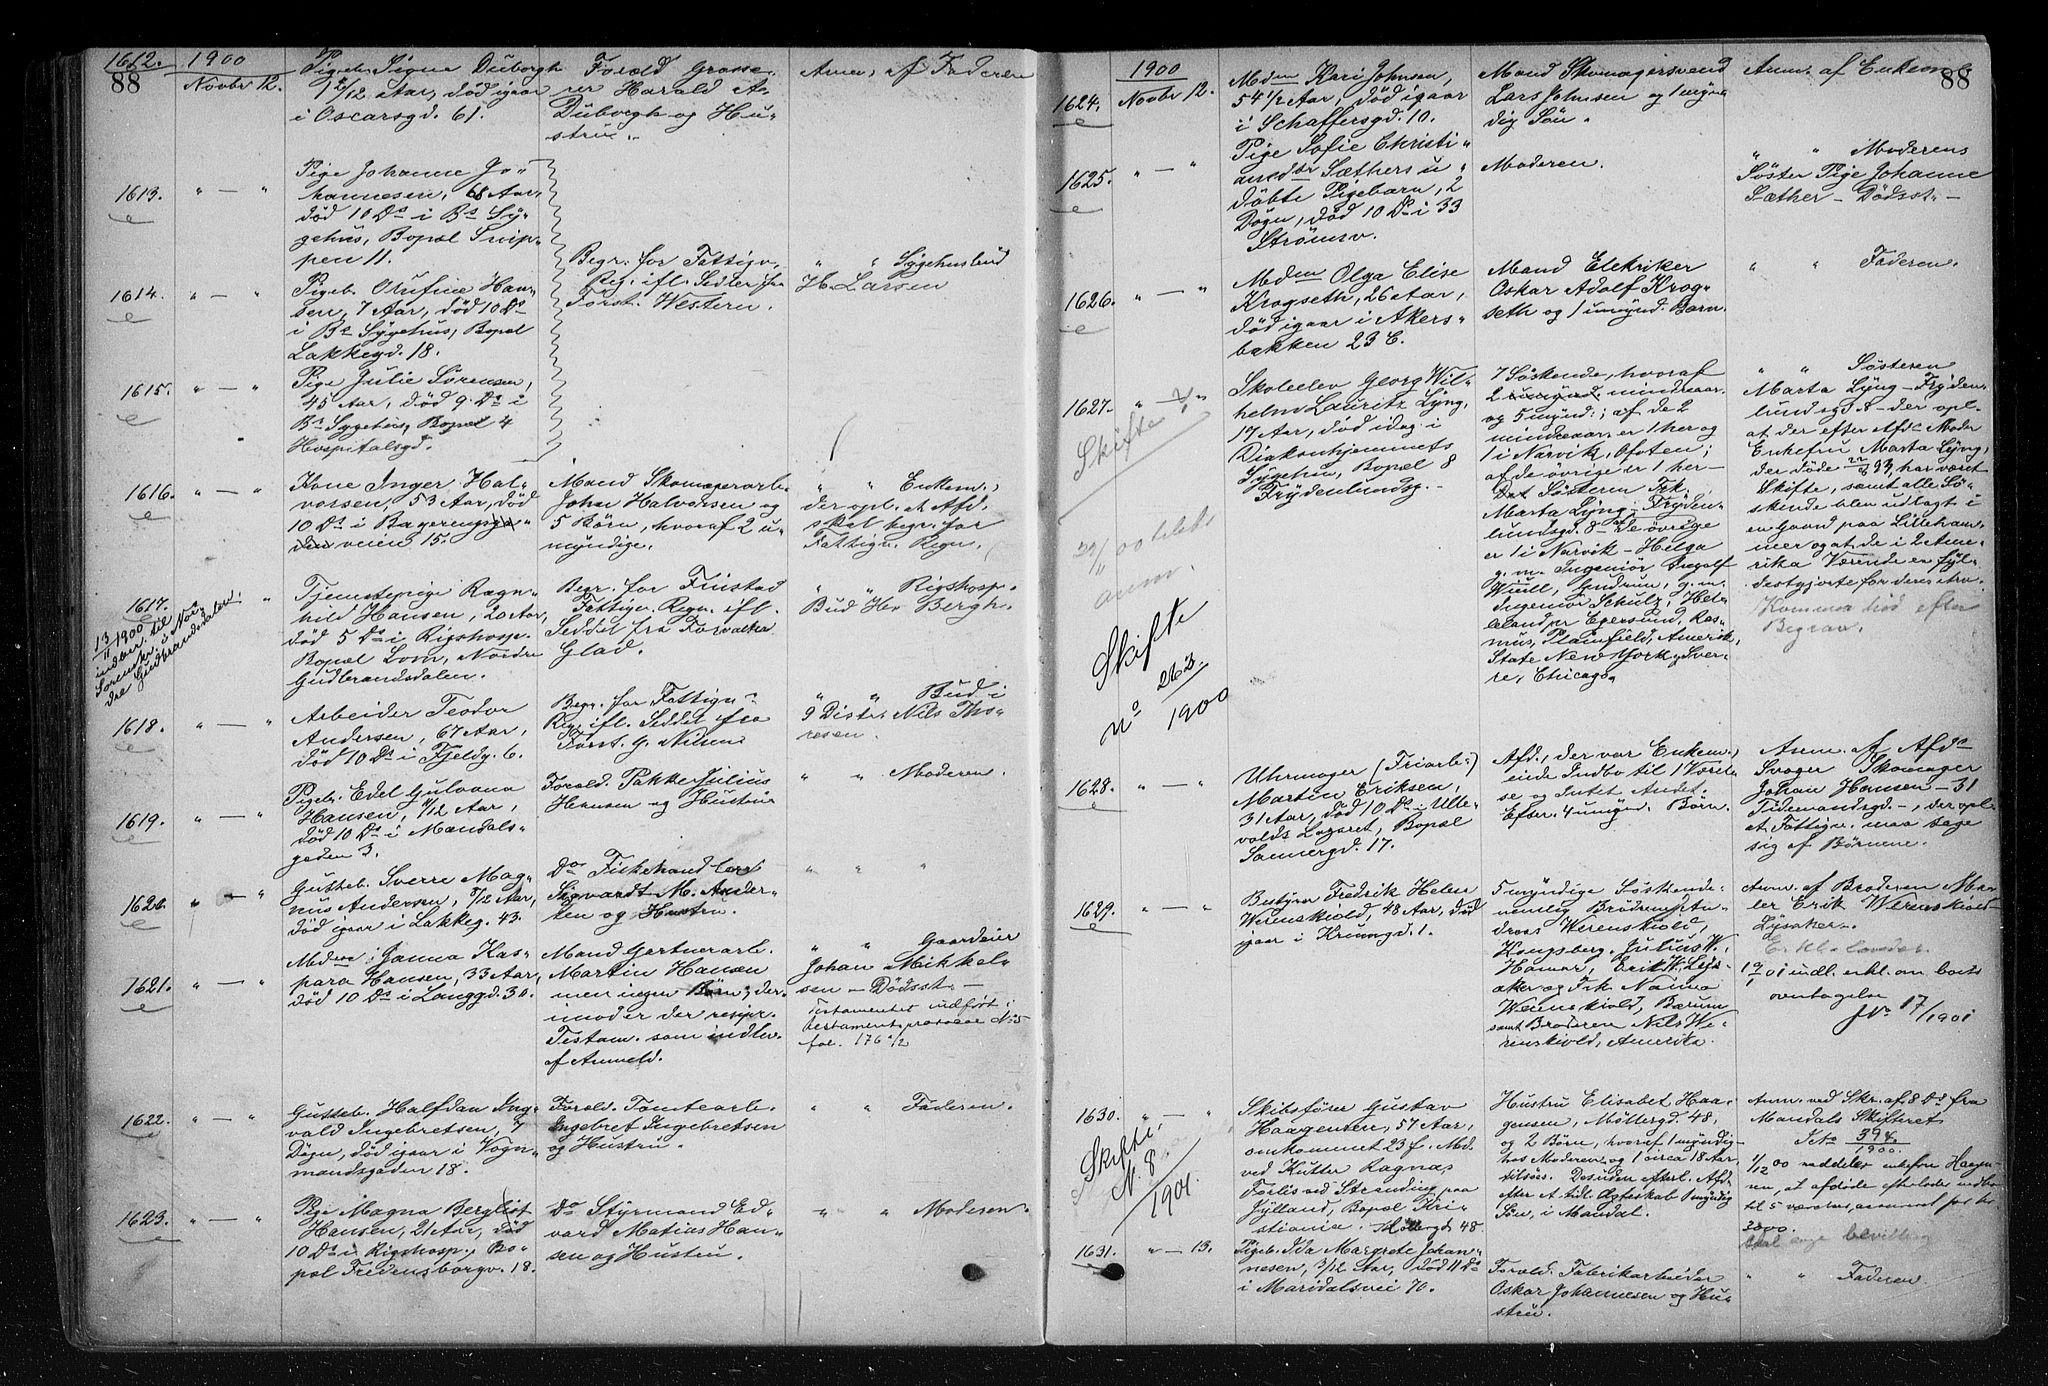 88
1612.
1900
Novbr 12.
Pigeb. Signe Duborgh
12/12 Aar, død igaar
i Oscarsgd. 61.
Foræld. Grosse-
rer Harald A.
Duborgh og Hu-
stru.
Anm. af Faderen
1613.
" — "
Pige Johanne Jo-
hannesen, 68 Aar,
død 10 Ds i Bs Sy-
gehus, Bopæl Snip-
pen 11.
1614.
" — "
Pigeb. Hansen, 7 Aar, død 10 Ds
i Bs Sygehus, Bopæl
Lakkegd. 18.
Begr. for Fattigv.
Reg. ifl. Seddel fra
Forst. Western.
" " Sygehusbud
H. Larsen
1615.
" — "
Pige Julie Sørensen,
45 Aar, død 9. Ds i
Bs Sygehus, Bopæl 4
Hospitalsgd.
1616.
" — "
Kone Inger Hal-
vorsen, 53 Aar, død
10 Ds i
veien 15.
Mand Skomagerarb.
Johan Halvorsen og
5 Børn, hvoraf 2 u-
myndige.
" " Enkem.,
der opl. at Afd.
skal begr. for
Fattigv. Regn.
1617.
"
13/11 1900
indber. til
Sorenskr. i Nor-
dre Gudbrandsdalen.
Tjenestepige Ragn-
hild Hansen, 20 Aar,
død 5 Ds i Rigshosp.
Bopæl Lom, Nordre
Gudbrandsdalen.
Begr. for
Fattigv. Regn. ifl.
Seddel fra Forvalter
Glad.
" " Rigshosp.
Bud Hr Bergh.
1618.
" — "
Arbeider Teodor
Andersen, 67 Aar,
død 10 Ds i Fjeldg. 6.
Begr. for Fattigv.
Reg. ifl. Seddel fra
Forst. G. Nilsen
" " Bud i
9 Distr. Nils Tho-
resen.
1619.
" — "
Pigeb. Edel Gulvana
Hansen, 11/12 Aar,
død 10 Ds i Mandals-
gaden 3.
Foræld. Pakker Julius
Hansen og Hustru
" " Moderen.
1620.
" — "
Gutteb. Sverre Mag-
nus Andersen, 5/12 Aar,
død igaar i Lakkeg. 43.
Do Fiskehandler
Sigvardt M. Ander-
sen og Hustru.
" " "
1621.
" — "
Mdme Janna Kas-
para Hansen, 33 Aar,
død 10 Ds i Langgd. 30.
Mand Gartnerarb.
Martin Hansen
men ingen Børn; der-
imod er der respr.
Testam. som indlev.
af Anmeld.
" " Gaardeier
Johan Mikkel-
sen — Dødsst. —
Testamentet indført i
testamentsprotocol No 5
fol. 176 1/2
1622.
" — "
Gutteb. Halfdan Ing-
vald Ingebretsen, 7
Døgn, død igaar i Vogn-
mandsgaden 18.
Foræld. Tomtearb.
Ingebret Ingebretsen
og Hustru.
" " Faderen.
1623.
" — "
Pige Magna Bergliot
Hansen, 21 Aar, død
10 Ds i Rigshosp., Bo-
pæl Fredensborgv. 18.
Do Styrmand Ed-
vard Matias Han-
sen og Hustru.
" " Moderen.
88
1900
1624.
Novbr 12.
Mdm Kari Johnsen,
54 1/2 Aar, død igaar
i Schaffersgd. 10.
Mand Skomagersvend
Lars Johnsen og 1 myn-
dig Søn.
Anm. af Enkem.
1625.
" — "
Pige Sofie Christi-
Sæthers u-
døbte Pigebarn, 2
Døgn, død 10 Ds i 33
Strømsv.
Moderen.
" " Moderens
Søster Pige Johanne
Sæther — Dødsst. —
1626.
" — "
Mdm Olga Elise
Krogseth, 26 Aar,
død igaar i Akers-
bakken 23 E.
Mand Elektriker
Oskar Adolf Krog-
seth og 1 umynd. Barn.
" " Faderen.
1627.
" — "
Skifte?
Skoleelev Georg Wil-
helm Lauritz Lyng,
17 Aar, død idag i
Diakonhjemmets
Sygehu, Bopæl 8
Frydenlundsg. -
7 Søskende, hvoraf
2 umynd. mindreaar.
og 5 mynd.; af de 2
mindreaar. er 1 her og
1 i Narvik, Ofoten;
af de øvrige er 1 her —
Søsteren Frk.
Marta Lyng — Fryden-
lundsgd. 8 — De øvrige
er 1 i Narvik — Helga
g. m. Ingeniør Ingolf
g. m.
Ingeniør Schulz, Hel-
leland pr Egersund, Ras-
mus, Plainfield, Amerik.
State New York, Sver-
re, Chicago.
" " Søsteren
Marta Lyng — Fryden-
lundsgd 8 — der opl.
at der efter Afds Moder
Enkefru Marta Lyng,
der døde 22/8 93, har været
Skifte, samt alle Sø-
skende blev udlagt i
en Gaard paa Lilleham-
mer og at de i 2 Ame-
rika Værende er fyl-
destgjorte for deres Arv.
Komma ind efter
Begrav.
00
anm.
Skifte
No 263
1900
1628.
" — "
Uhrmager (Friarb.)
Martin Eriksen,
31 Aar, død 10 Ds i Ulle-
volds Lazaret, Bopæl
Sannergd. 17.
Afd., der var Enkem.,
eiede Indbo til 1 Værel-
se og Intet Andet.
Efter. 4 umynd. Børn.
Anm. af Afds
Svoger Skomager
Johan Hansen — 31
Tidemandsgd. —, der opl.
at Fattigv. maa tage
sig af Børnene.
1629.
" — "
Bestyrer Fredrik Helen
Werenskiold, 48 Aar, død
igaar i Krumgd. 1.
5 myndige Søskende
nemlig Brødrene An-
dreas Werenskiold,
Kongsberg, Julius W.,
Hamar, Erik W., Lys-
aker og Frk Naima
Werenskiold, Bærum
samt Broderen Nils We-
renskiold, Amerika.
Anm. af Broderen Ma-
ler Erik Werenskiold
Lysaker.
01 indl. erkl. om boets
overtagelse
JNo 17/1901
1630.
" — "
Skifte.
N. 8
1901.
Skibsfører Gustav
Haagensen, 57 Aar,
omkommet 23 f. Md.
ved Kutter Ragnas
Forlis ved Stranding paa
Jylland, Bopæl Kri-
stiania. Møllergd 48
Hustru Elisabet Haa-
gensen, Møllergd. 48,
og 2 Børn, hvoraf 1 myndig
hos Moderen og 1 circa 18 Aar,
tilsøes. Desuden efterl. Afd.
efter et tidl. Ægteskab 1 myndig
Søn, i Mandal.
Anm. ved Skr. af 8 Ds fra
Mandals Skifteret
JNo 394/1900.
1/12 00 meddeler enkefru Haagen-
sen, at afdøde efterlod indbo
til 5 værelser, assureret for kr
2000.
bevilling
1631.
" — 13.
Pigeb. Ida Margrete Johan-
nesen, 3/12 Aar, død 11 Ds
i Maridalsvei 70.
Foræld. Fabrikarbeider
Oskar Johannesen og Hu-
stru.
" " Faderen